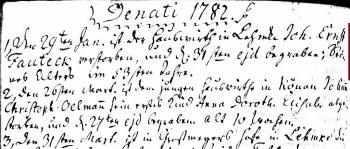 Denati 1782.
1, Den 29ten Jan. ist der Haußwirth in Lehmke Joh. Ernst
Fauteck verstorben, und d. 31sten ejd begraben; Sei-
nes Alters im 53sten Jahre.
2. den 26sten Mart. ist dem jungen Haußwirth in Könau Johan
Christoph Oelmann sein erstes Kind Anna Doroth. Elisabe abge-
storben, und d. 27ten ejd begraben alt 10 Wochen.
3, den 31sten Mart. ist in Hofe in Lehmke die